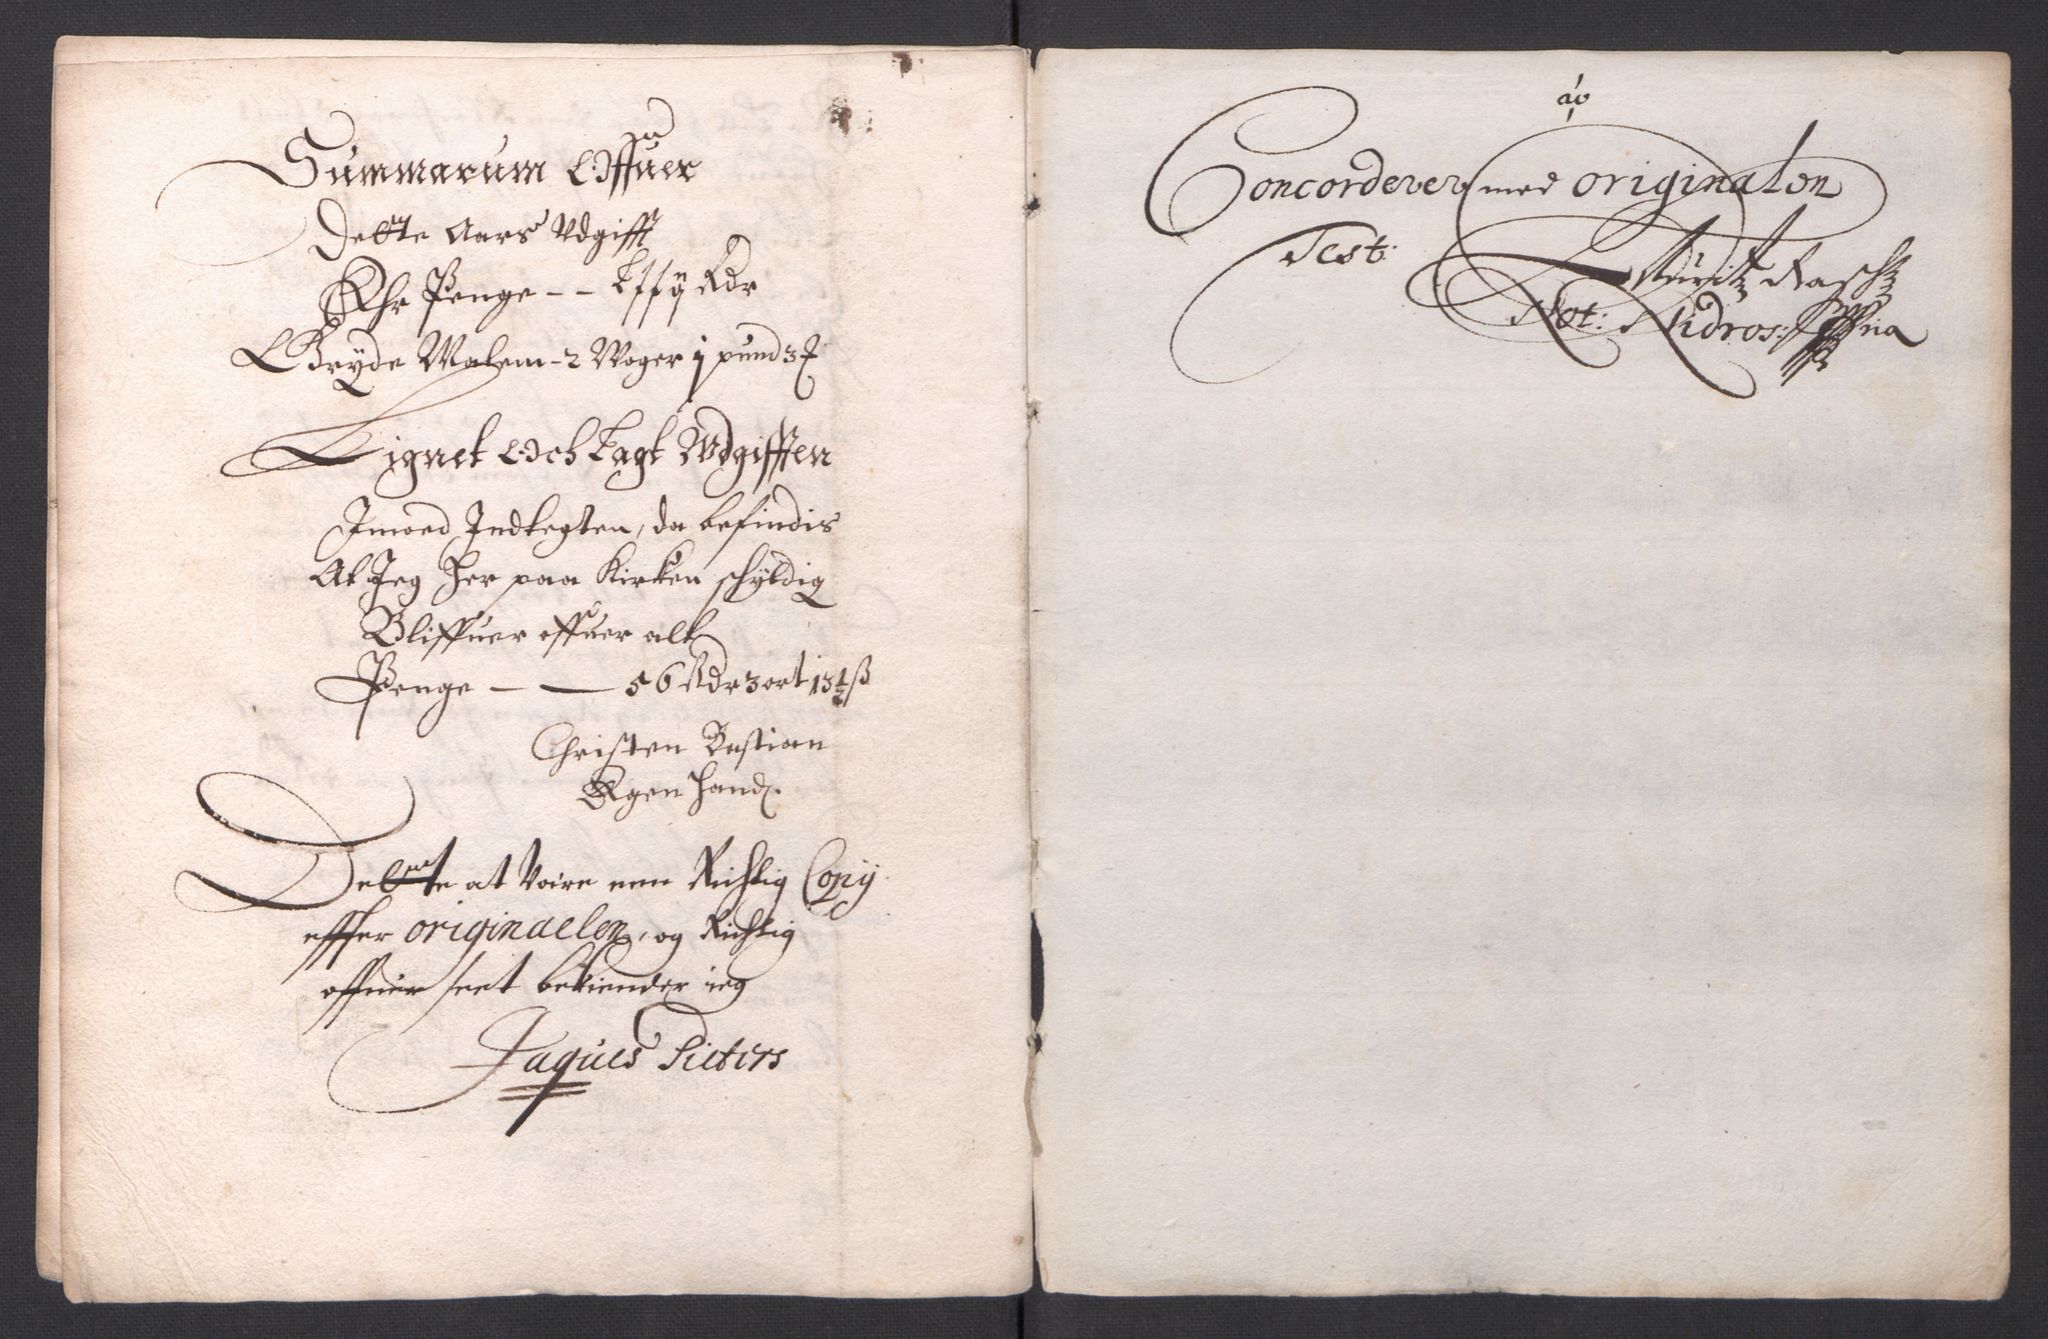 Summarum Offuer
Dette Aars Vdgifft
Ahr Penge - - Lffij Rdr
Gryde Malem - 2 Woger j pund 3
Lignet Och Lagt Wdgifften
Jmoed Jndtegten, da befindis
At Jeg Her paa Kirken schyldig
Bliffuer offuer alt
Penge — — 56 Rdr 3 ort 13½ ß
Christen Bastian
Egen Hand.
Dette at Vaire enn Richtig Copij
effter originaelen, og Richtig
offuer seet bekiender ieg
Jaques Pieters
Concorderer med originalen
Test:
Mûritz Rasch
Not: Nidros: